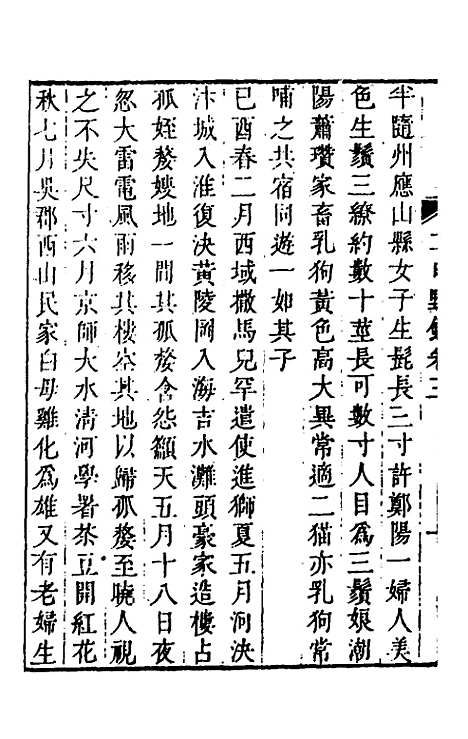 半隨州應山縣女子生髭長三寸許鄭陽一婦人美
色生鬚三繚約數十莖長可數寸人目爲三鬚娘潮
陽蕭瓚家畜乳狗黃色高大異常適二猫亦乳狗常
哺之共宿同遊一如其子
已酉春二月西域撒馬兒罕遣使進獅夏五月河決
汴城入淮復決黃陵岡入海吉水灘頭豪家造樓占
孤姪嫠嫂地一間其孤嫠含怨籲天五月十八日夜
忽大雷電風雨移其樓空其地以歸孤嫠至曉人視
之不失尺寸六月京師大水清河學署茶豆開紅花
秋七月吳郡西山民家白母雞化爲雄又有老婦生